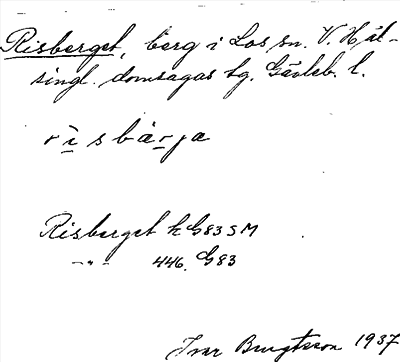 Risberget, berg i Los sn. V. Häl-
singl. domsagas tg. Gävleb. l.
risbärja
Risberget k G83SM
-"- 446. G83
Ivar Bengtsson 1937